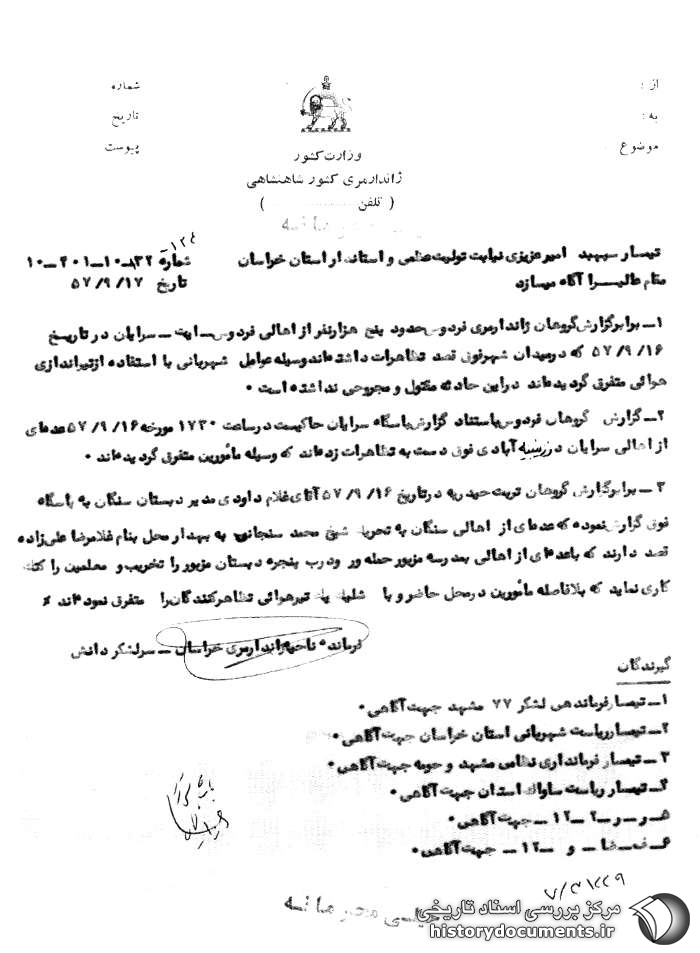 از :
به :
موضوع
شماره
تاریخ
پیوست
وزارت کشور
ژاندارمری کشور شاهنشاهی
( تلفن .................. )
تیمسار سپهبد امیرعزیزی نیابت تولیت عظمی و استاندار استان خراسان
شماره ۸۳۲-۱۰-۴۰۱-۱۰
مقام عالی را آگاه میسازد
تاریخ ۵۷/۹/۱۷
۱ــ برابر گزارش گروهان ژاندارمری فردوس حدود پنج هزار نفر از اهالی فردوس ــ آیت ــ سرایان در تاریخ
۵۷/۹/۱۶ که در میدان شهر فوق قصد تظاهرات داشته‌اند وسیله عوامل شهربانی با استفاده از تیراندازی
هوائی متفرق گردیده‌اند در این حادثه مقتول و مجروحی نداشته است ۰
۲ــ گزارش گروهان فردوس باستناد گزارش پاسگاه سرایان حاکیست در ساعت ۱۷۳۰ مورخه ۵۷/۹/۱۶ عده‌ای
از اهالی سرایان در آبادی فوق دست به تظاهرات زده‌اند که وسیله مأمورین متفرق گردیده‌اند ۰
۳ ــ برابر گزارش گروهان تربت حیدریه در تاریخ ۵۷/۹/۱۶ آقای غلام داودی مدیر دبستان سنگان به پاسگاه
فوق گزارش نموده که عده‌ای از اهالی سنگان به تحریک شیخ محمد سنجانی به بهدار محل بنام غلامرضا علی‌زاده
قصد دارند که با عده‌ای از اهالی بمدرسه مزبور حمله ور و درب پنجره دبستان مزبور را تخریب و معلمین را کتک
کاری نماید که بلافاصله مأمورین در محل حاضر و با شلیک یک تیر هوائی تظاهرکنندگان را متفرق نموده‌اند
فرمانده ناحیه ژاندارمری خراسان ــ سرلشکر دانش
گیرندگان
۱ــ تیمسار فرماندهی لشکر ۷۷ مشهد جهت آگاهی ۰
۲ــ تیمسار ریاست شهربانی استان خراسان جهت آگاهی ۰
۳ ــ تیمسار فرمانداری نظامی مشهد و حومه جهت آگاهی ۰
۴ــ تیمسار ریاست ساواک استان جهت آگاهی ۰
۵ــ ر ــ ۲ ــ ۱۲ ــ جهت آگاهی ۰
۶ــ و ــ ۱۲ ــ جهت آگاهی ۰
خیلی محرمانه
مرکز بررسی اسناد تاریخی
historydocuments.ir